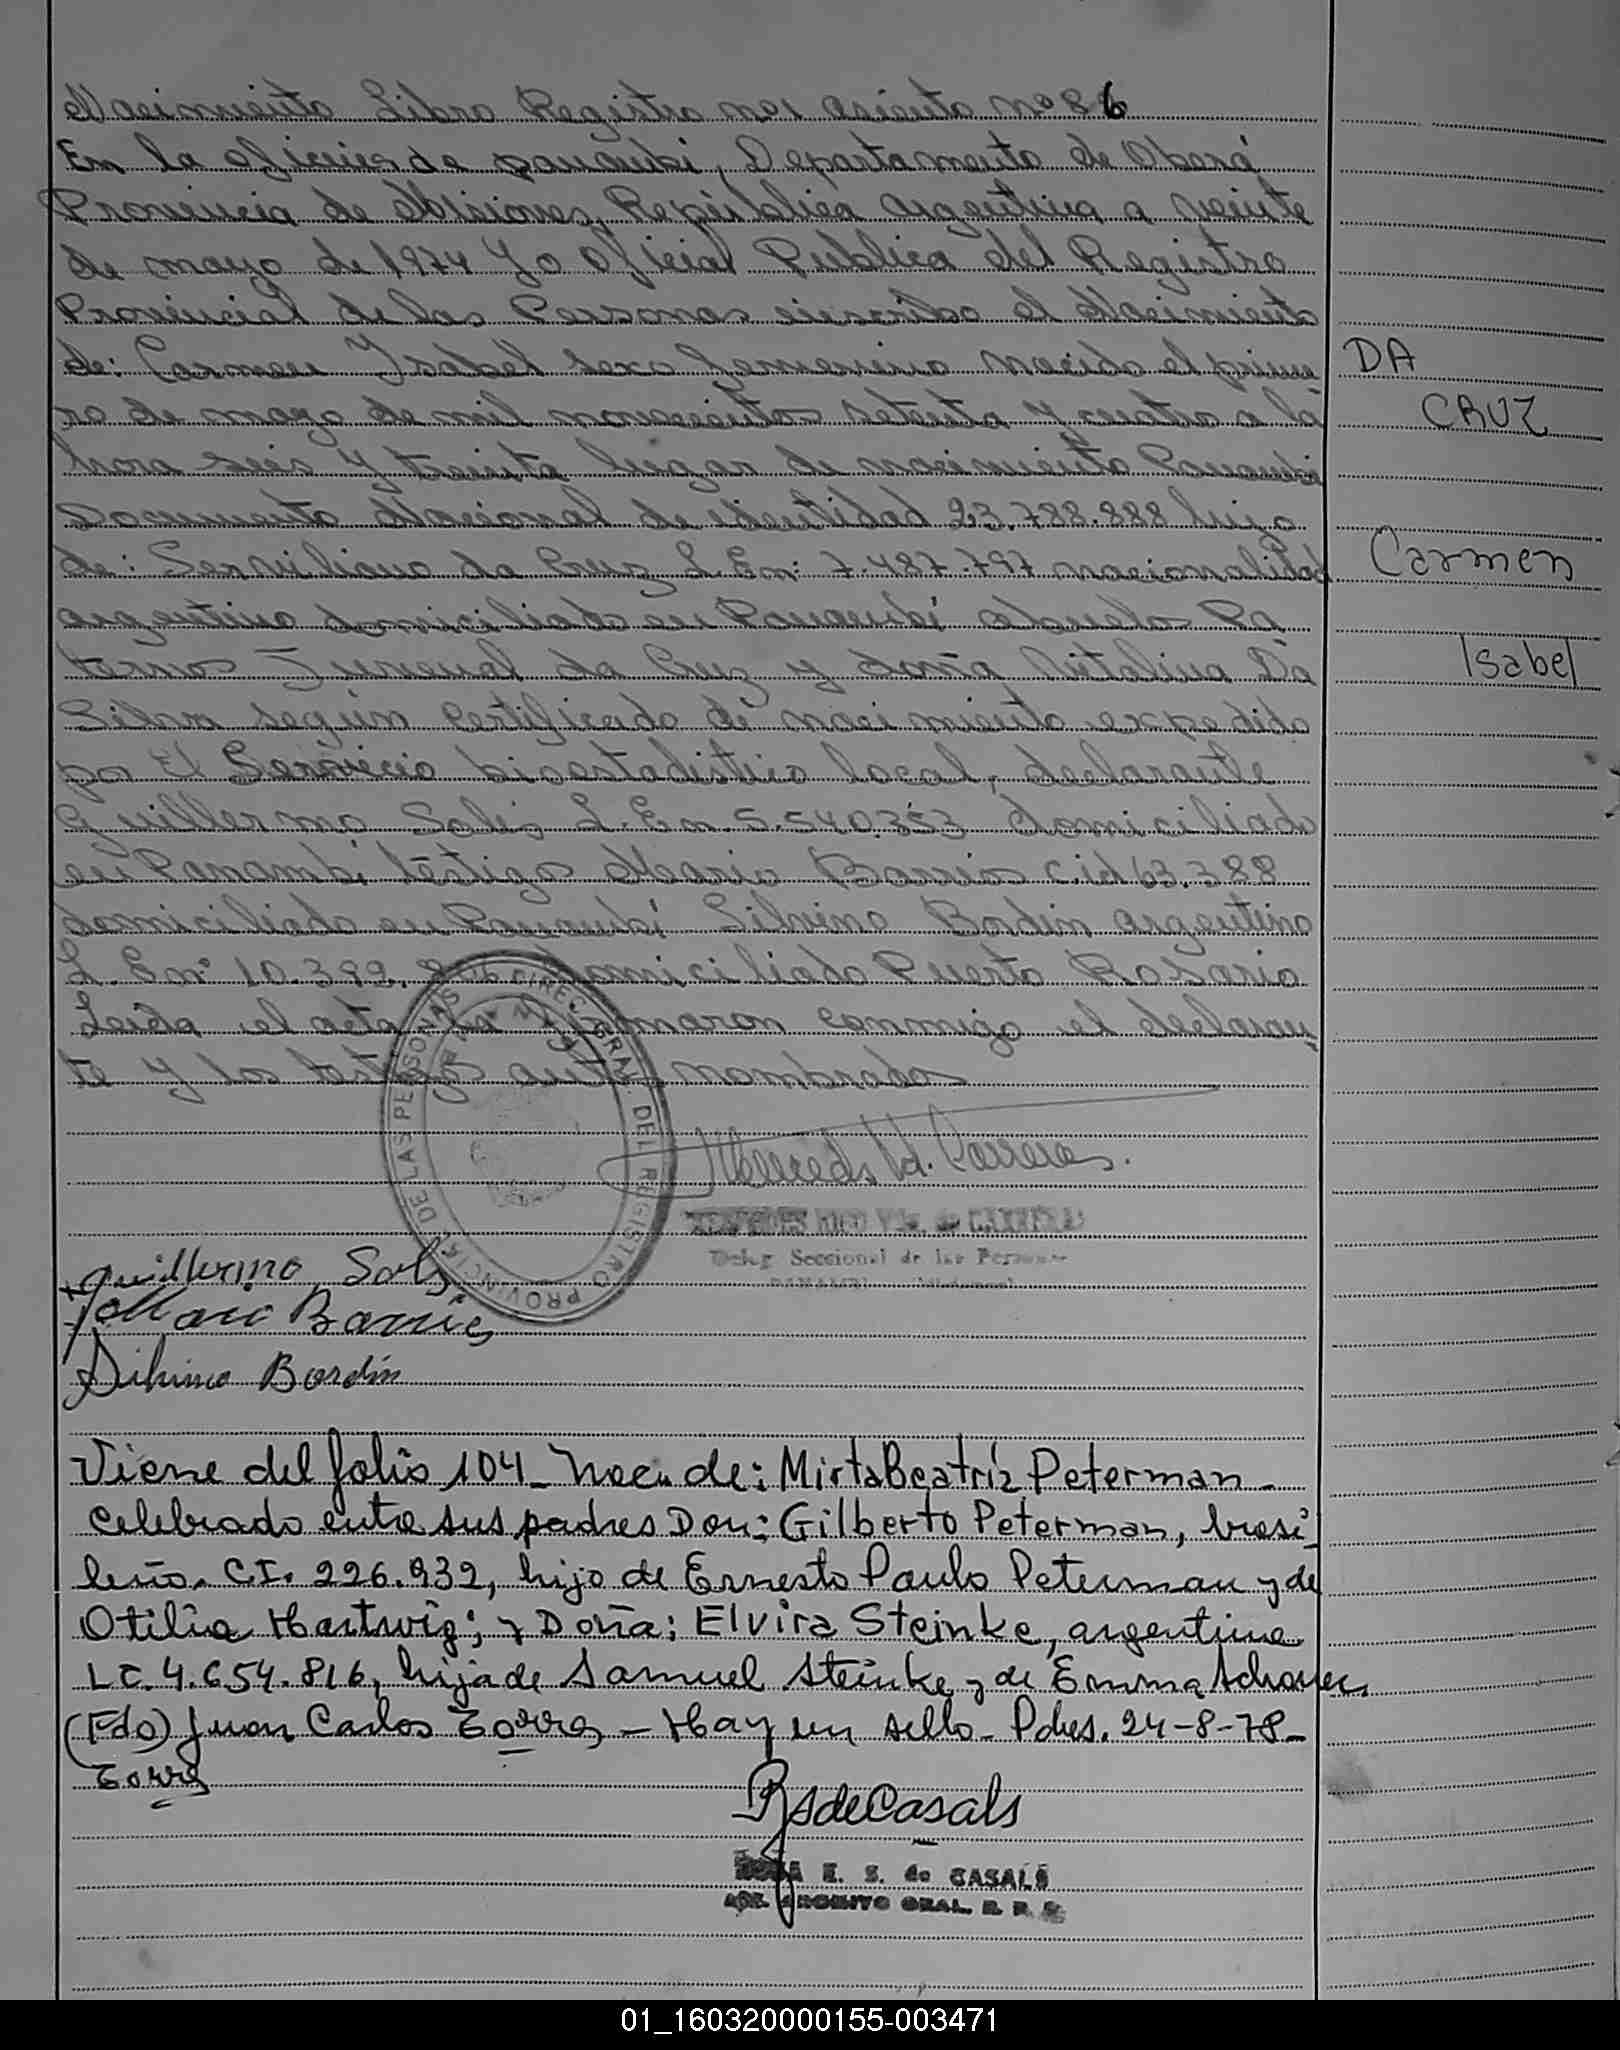 Nacimiento Libro Registro nº1 asiento nº 86
En la oficina de panambi, Departamento de Oberá
Provincia de Misiones, República argentina a veinte
de mayo de 1974 Yo Oficial Publica del Registro
Provincial de las Personas inscribo el Nacimiento
de: Carmen Ysabel sexo femenino nacido el prime
DA
ro de mayo de mil novecientos setenta y cuatro a la
CRUZ
hora seis y treinta lugar de nacimiento Panambi
Documento Nacional de identidad 23.788.888 hijo
de: Serviliano da Cruz L.En: 7.487.797 nacionalidad
Carmen
argentino domiciliado en Panambí abuelos Pa
ternos Juvenal da Cruz y doña Vitalina Da
Isabel
Silva según certificado de nacimiento expedido
por El Servicio bioestadistico local, declarante
Guillermo Solis L.En. 5.540.353 domiciliado
en Panambi testigos Mario Barrios c.id 63.388
domiciliado en Panambí Silvino Bordin argentino
L. Enº 10.399. domiciliado Puerto Rosario
Leida el acta la firmaron conmigo el declaran
te y los testigos antes nombrados
DIREC. GRAL. DEL REGISTRO PROVINCIAL DE LAS PERSONAS
Mercedes Vd. Carreras.
Vda. de CARRERAS
Seccional de las Personas
PANAMBI
Guillermo Solis
Mario Barrios
Silvino Bordín
Viene del folio 104_ Nac. de: Mirta Beatríz Peterman_
celebrado entre sus padres Don: Gilberto Peterman, brasi
leño. C.I. 226.932, hijo de Ernesto Paulo Peterman y de
Otilia Hartwig; y Doña: Elvira Steinke, argentina
LC. 4.654.816, hija de Samuel Steinke y de Emma
(Fdo) Juan Carlos Torres - Hay un sello_ Pdas. 24-8-78_
Torres
RSdeCasals
ROSA E. S. de CASALS
ARCHIVO GRAL. R. P. P.
01_160320000155-003471